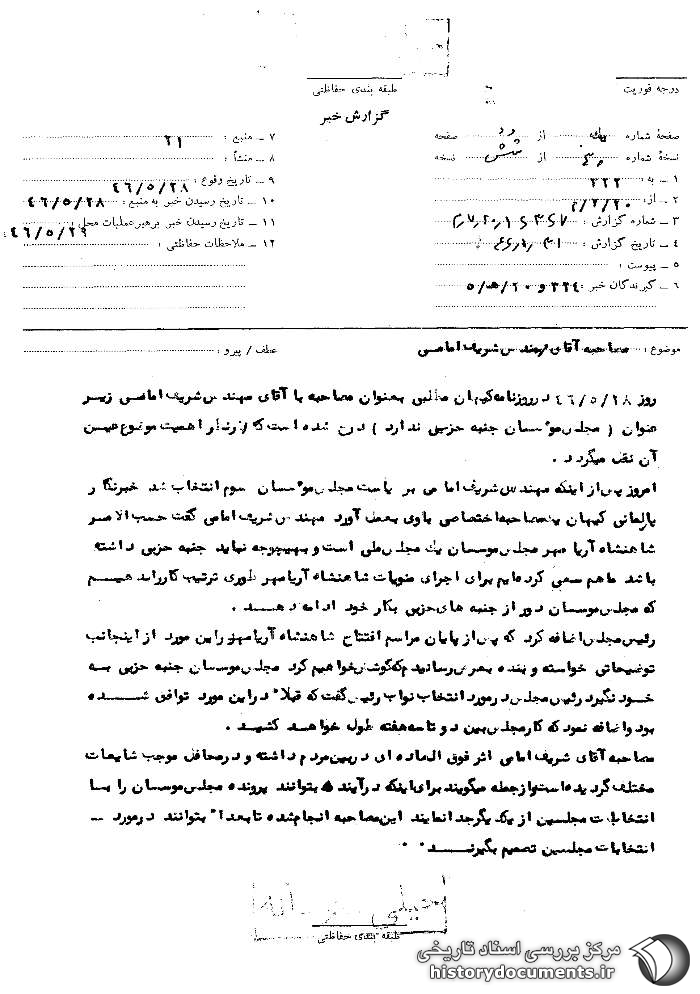 درجه فوریت
طبقه بندی حفاظتی
گزارش خبر
صفحهٔ شماره یک از دو صفحه
نسخهٔ شماره از شش نسخه
۱ ـ به : ۳۲۲
۲ ـ از :
۳ ـ شماره گزارش :
۴ ـ تاریخ گزارش :
۵ ـ پیوست :
۶ ـ گیرندگان خبر : ۳۲۴ و ۲۰/هـ/۵
۷ ـ منبع : ۲۱
۸ ـ منشأ :
۹ ـ تاریخ وقوع : ۴۶/۵/۲۸
۱۰ ـ تاریخ رسیدن خبر به منبع : ۴۶/۵/۲۸
۱۱ ـ تاریخ رسیدن خبر برهبر عملیات محل : ۴۶/۵/۲۹
۱۲ ـ ملاحظات حفاظتی :
موضوع : مصاحبه آقای مهندس شریف امامی
عطف / پیرو :
روز ۴۶/۵/۲۸ در روزنامه کیهان مطلبی بعنوان مصاحبه با آقای مهندس شریف امامی زیر
عنوان ( مجلس مؤسسان جنبه حزبی ندارد ) درج شده است که از نظر اهمیت موضوع عین
آن نقل میگردد .
امروز پس از اینکه مهندس شریف امامی بر یاست مجلس مؤسسان سوم انتخاب شد خبرنگار
پارلمانی کیهان یک مصاحبه اختصاصی باوی بعمل آورد مهندس شریف امامی گفت حسب الامر
شاهنشاه آریا مهر مجلس موسسان یك مجلس ملی است و بهیچوجه نباید جنبه حزبی داشته
باشد ماهم سعی کرده ایم برای اجرای منویات شاهنشاه آریامهر طوری ترتیب کار را بدهیم
که مجلس موسسان دور از جنبه های حزبی بکار خود ادامه دهد .
رئیس مجلس اضافه کرد که پس از پایان مراسم افتتاح شاهنشاه آریامهر در این مورد از اینجانب
توضیحاتی خواسته و بنده بعرض رسانیدم که کوشش خواهیم کرد مجلس موسسان جنبه حزبی به
خود نگیرد رئیس مجلس در مورد انتخاب نواب رئیس گفت که قبلاً در این مورد توافق شده
بود و اضافه نمود که کار مجلس بین دو تا سه هفته طول خواهد کشید .
مصاحبه آقای شریف امامی اثر فوق العاده ای در بین مردم داشته و در محافل موجب شایعات
مختلف گردیده است و از جمله میگویند برای اینکه در آینده بتوانند پرونده مجلس موسسان را با
انتخابات مجلسین از یک یگر جدا نمایند این مصاحبه انجام شده تا بعداً بتوانند در مورد ـ
انتخابات مجلسین تصمیم بگیرند .
خیلی محرمانه
طبقه بندی حفاظتی
مرکز بررسی اسناد تاریخی
historydocuments.ir